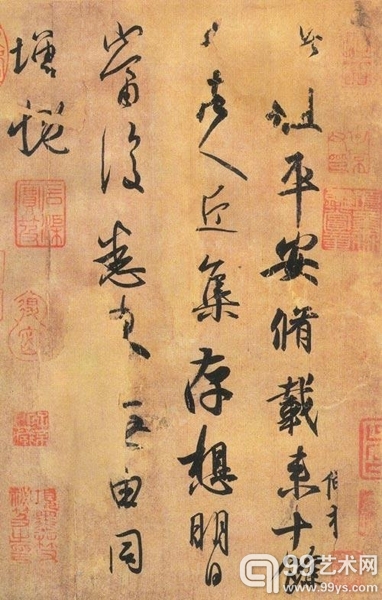 此粗平安脩載来十餘
日諸人近集存想明日
當復悉来无由同
增慨
99艺术网
www.99ys.com